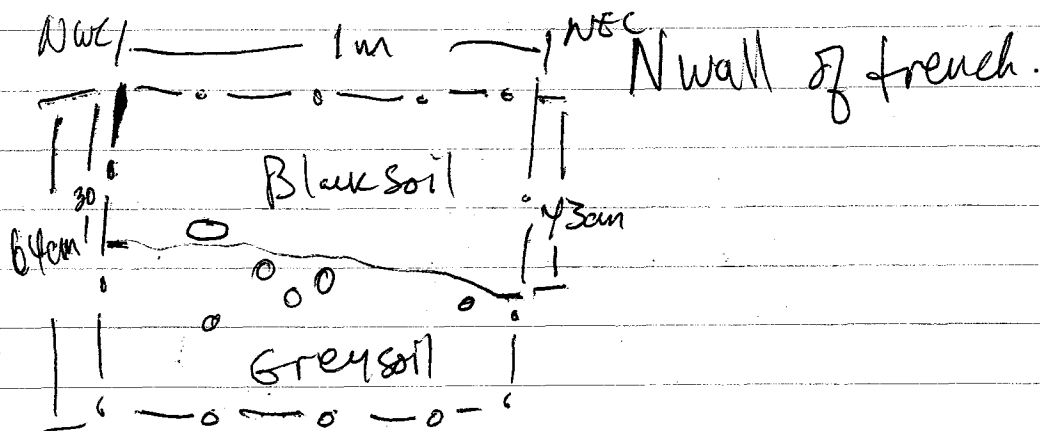 NWC 1m NEC
N wall of trench.
Black soil
30
64cm
43cm
Grey soil